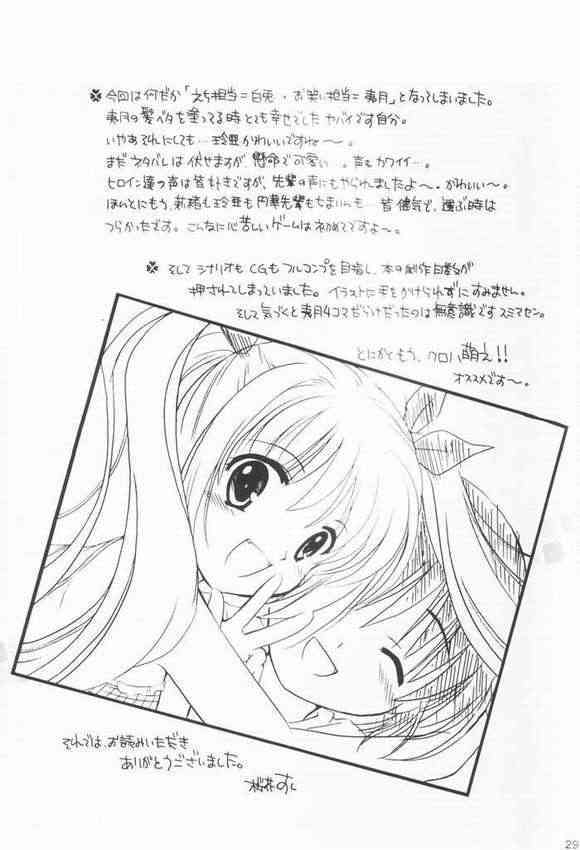 今回は何だか「えち担当=白兎・お笑い担当=夷月」となってしまいました。
夷月の髪ベタを塗ってる時とても幸せでした ヤバイです自分。
いやあそれにしても…玲亜かわいいですね〜。
まだネタバレは伏せますが、懸命で可愛い…。声もカワイイ…。
ヒロイン達の声は皆好きですが、先輩の声にもやられましたよ〜。かわいい〜。
ほんとにもう、玲亜も円華先輩も皆健気で、選ぶ時は
つらかったです。こんなに心苦しいゲームは初めてですよ〜。
そしてシナリオもCGもフルコンプを目指し、本の制作日数が
押されてしまっていました。イラストに手をかけられずにすみません。
そして気づくと夷月4コマだらけだったのは無意識です スミマセン。
とにかくもう、クロハ萌え!!
オススメです〜。
それでは、お読みいただき
ありがとうございました。
桜花すし
29